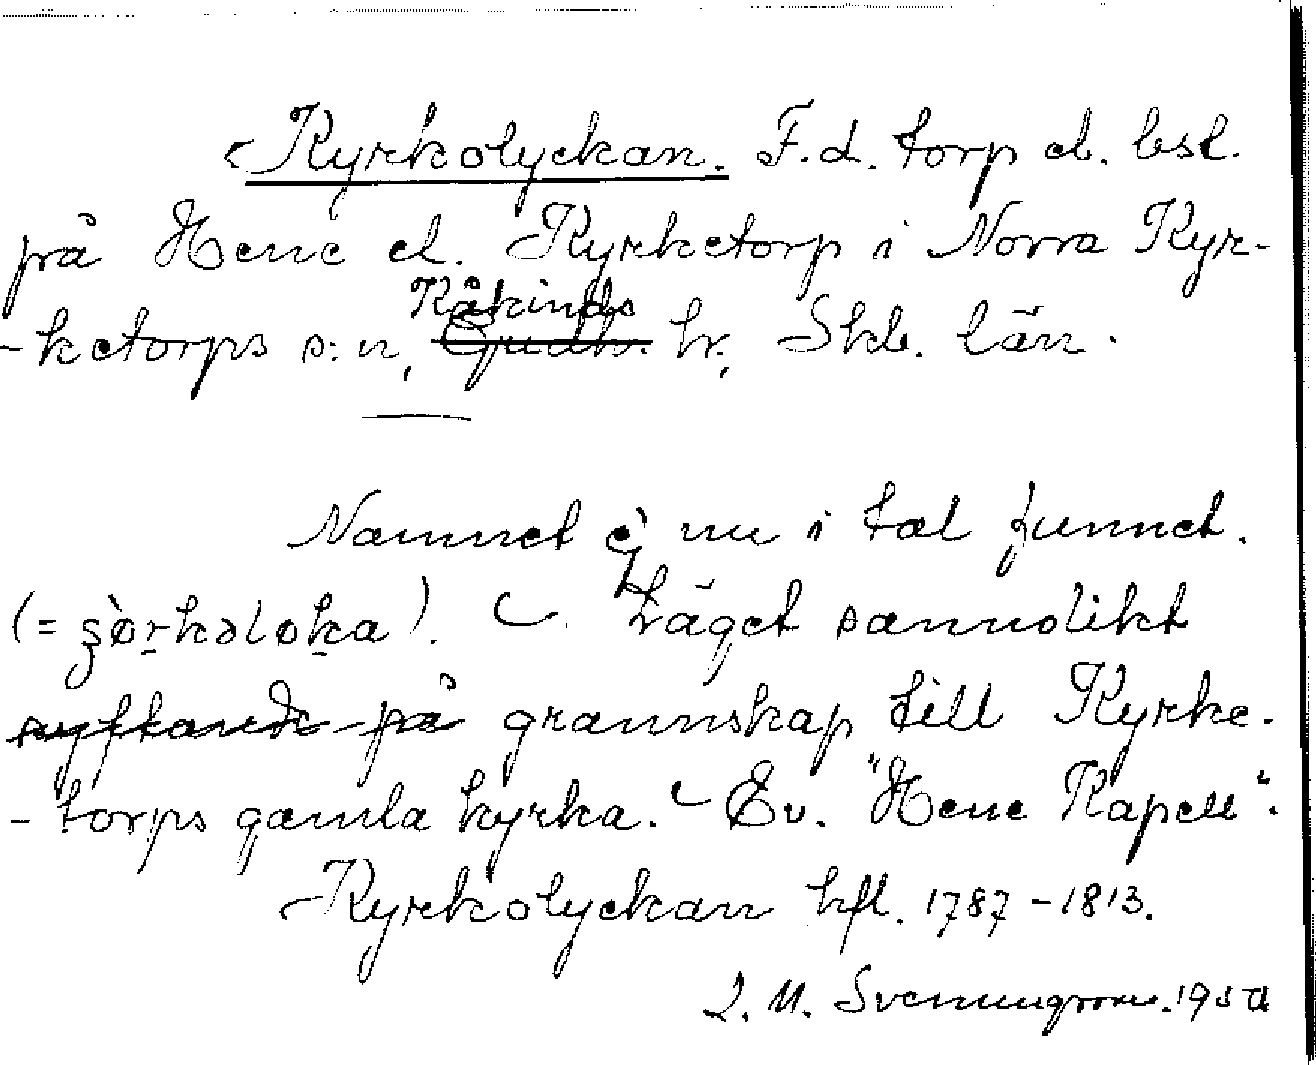 Kyrkolyckan. F.d. torp el. bst.
på Hene el. Kyrketorp i Norra Kyr-
-ketorps s:n, Kåkinds Gudh. hr, Skb. län.
Namnet ej nu i tal funnet.
(= ʂø̀rkəloka). Läget sannolikt
syftande på grannskap till Kyrke-
-torps gamla kyrka. Ev. "Hene Kapell".
Kyrkolyckan hfl. 1787-1813.